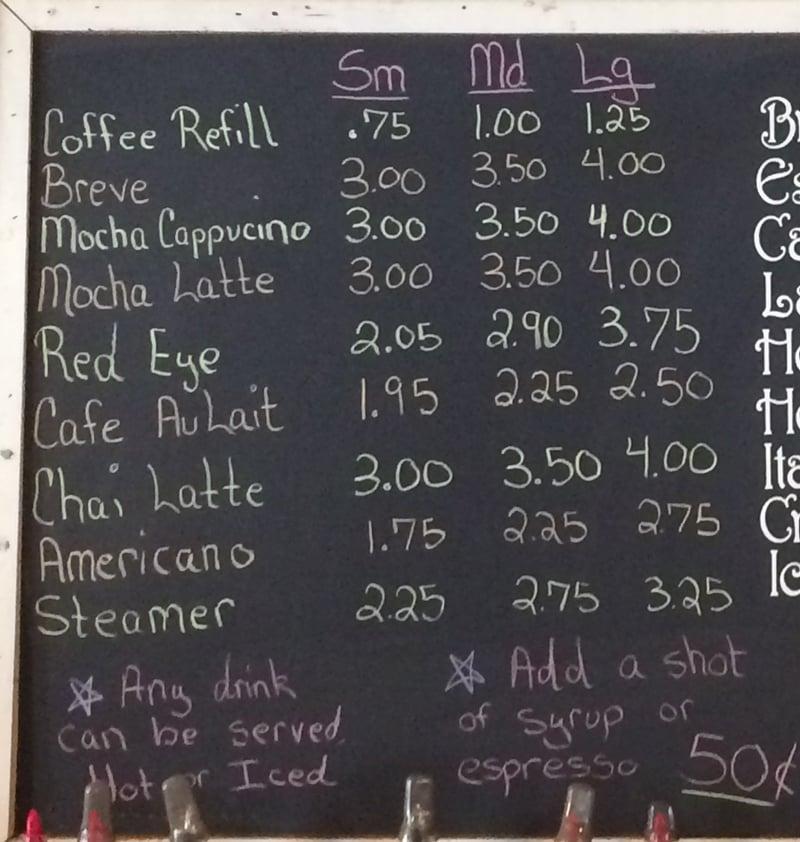 Sm Md Lg
Coffee Refill .75 1.00 1.25
Breve 3.00 3.50 4.00
Mocha Cappucino 3.00 3.50 4.00
Mocha Latte 3.00 3.50 4.00
Red Eye 2.05 2.90 3.75
Cafe Au Lait 1.95 2.25 2.50
Chai Latte 3.00 3.50 4.00
Americano 1.75 2.25 2.75
Steamer 2.25 2.75 3.25
☆ Any drink
can be served
Hot or Iced
☆ Add a shot
of syrup or
espresso 50¢